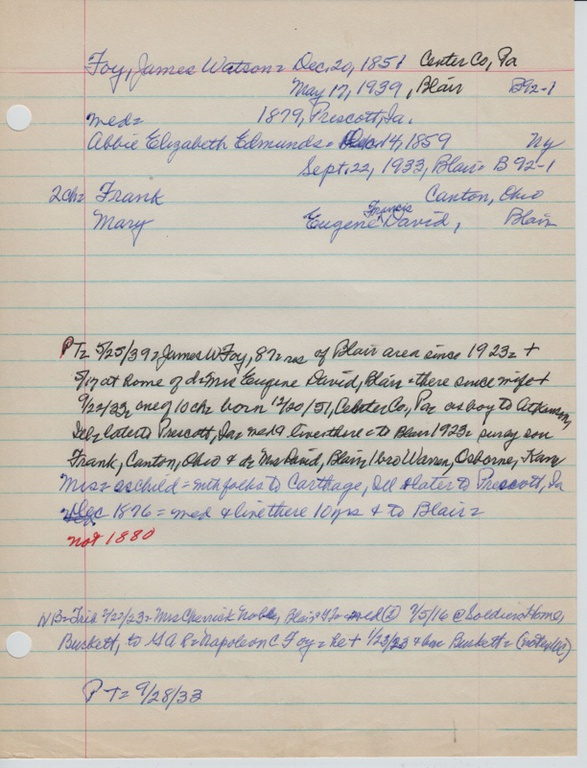 Foy, James Watson = Dec. 20, 1851 Center Co, Pa
May 17, 1939, Blair B92-1
med = 1879, Prescott, Ia.
Abbie Elizabeth Edmunds = Dec. 14, 1859 Ny
Sept. 22, 1933, Blair = B 92-1
2ch = Frank Canton, Ohio
Francis
Mary Eugene David, Blair
PT = 5/25/39 = James W Foy, 87 = res of Blair area since 1923 = +
5/17 at home of d = Mrs Eugene David, Blair = there since wife +
9/22/33 = one of 10 ch = born 12/20/51, Center Co., Pa as boy to Atkinson,
Ill = later to Prescott, Ia = med & live there = to Blair 1923 = surv = son
Frank, Canton, Ohio & d = Mrs David, Blair, 1 bro Warren, Osborne, Kan
Mrs = as child = with folks to Carthage, Ill & later to Prescott, Ia
Dec 1876 = med & live there 10 yrs & to Blair =
not 1880
NB = Trib 2/22/23 = Mrs Cherrick Noble, Blair = med (2) 7/5/16 @ Soldiers Home,
Burkett, to G A R = Napoleon C Foy = he + 1/23/23 & bur Burkett =
PT = 9/28/33